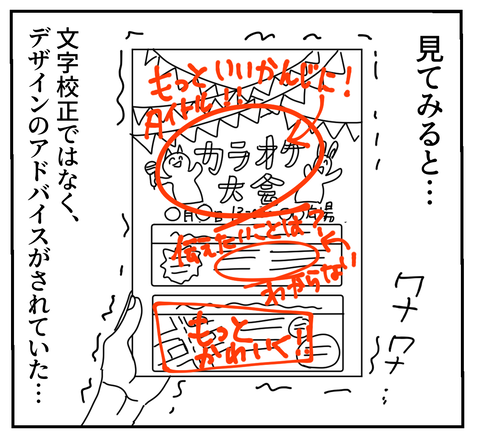 見てみると…
もっといいかんじに!
タイトル!!
カラオケ
大会
伝えたいことは?
わからない
もっと
かわいく!
ワナワナ
文字校正ではなく、
デザインのアドバイスがされていた…